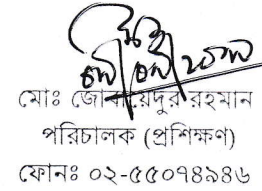 মোঃ জোবায়েদুর রহমান
পরিচালক (প্রশিক্ষণ)
ফোনঃ ০২-৫৫০৭৪৯৪৬